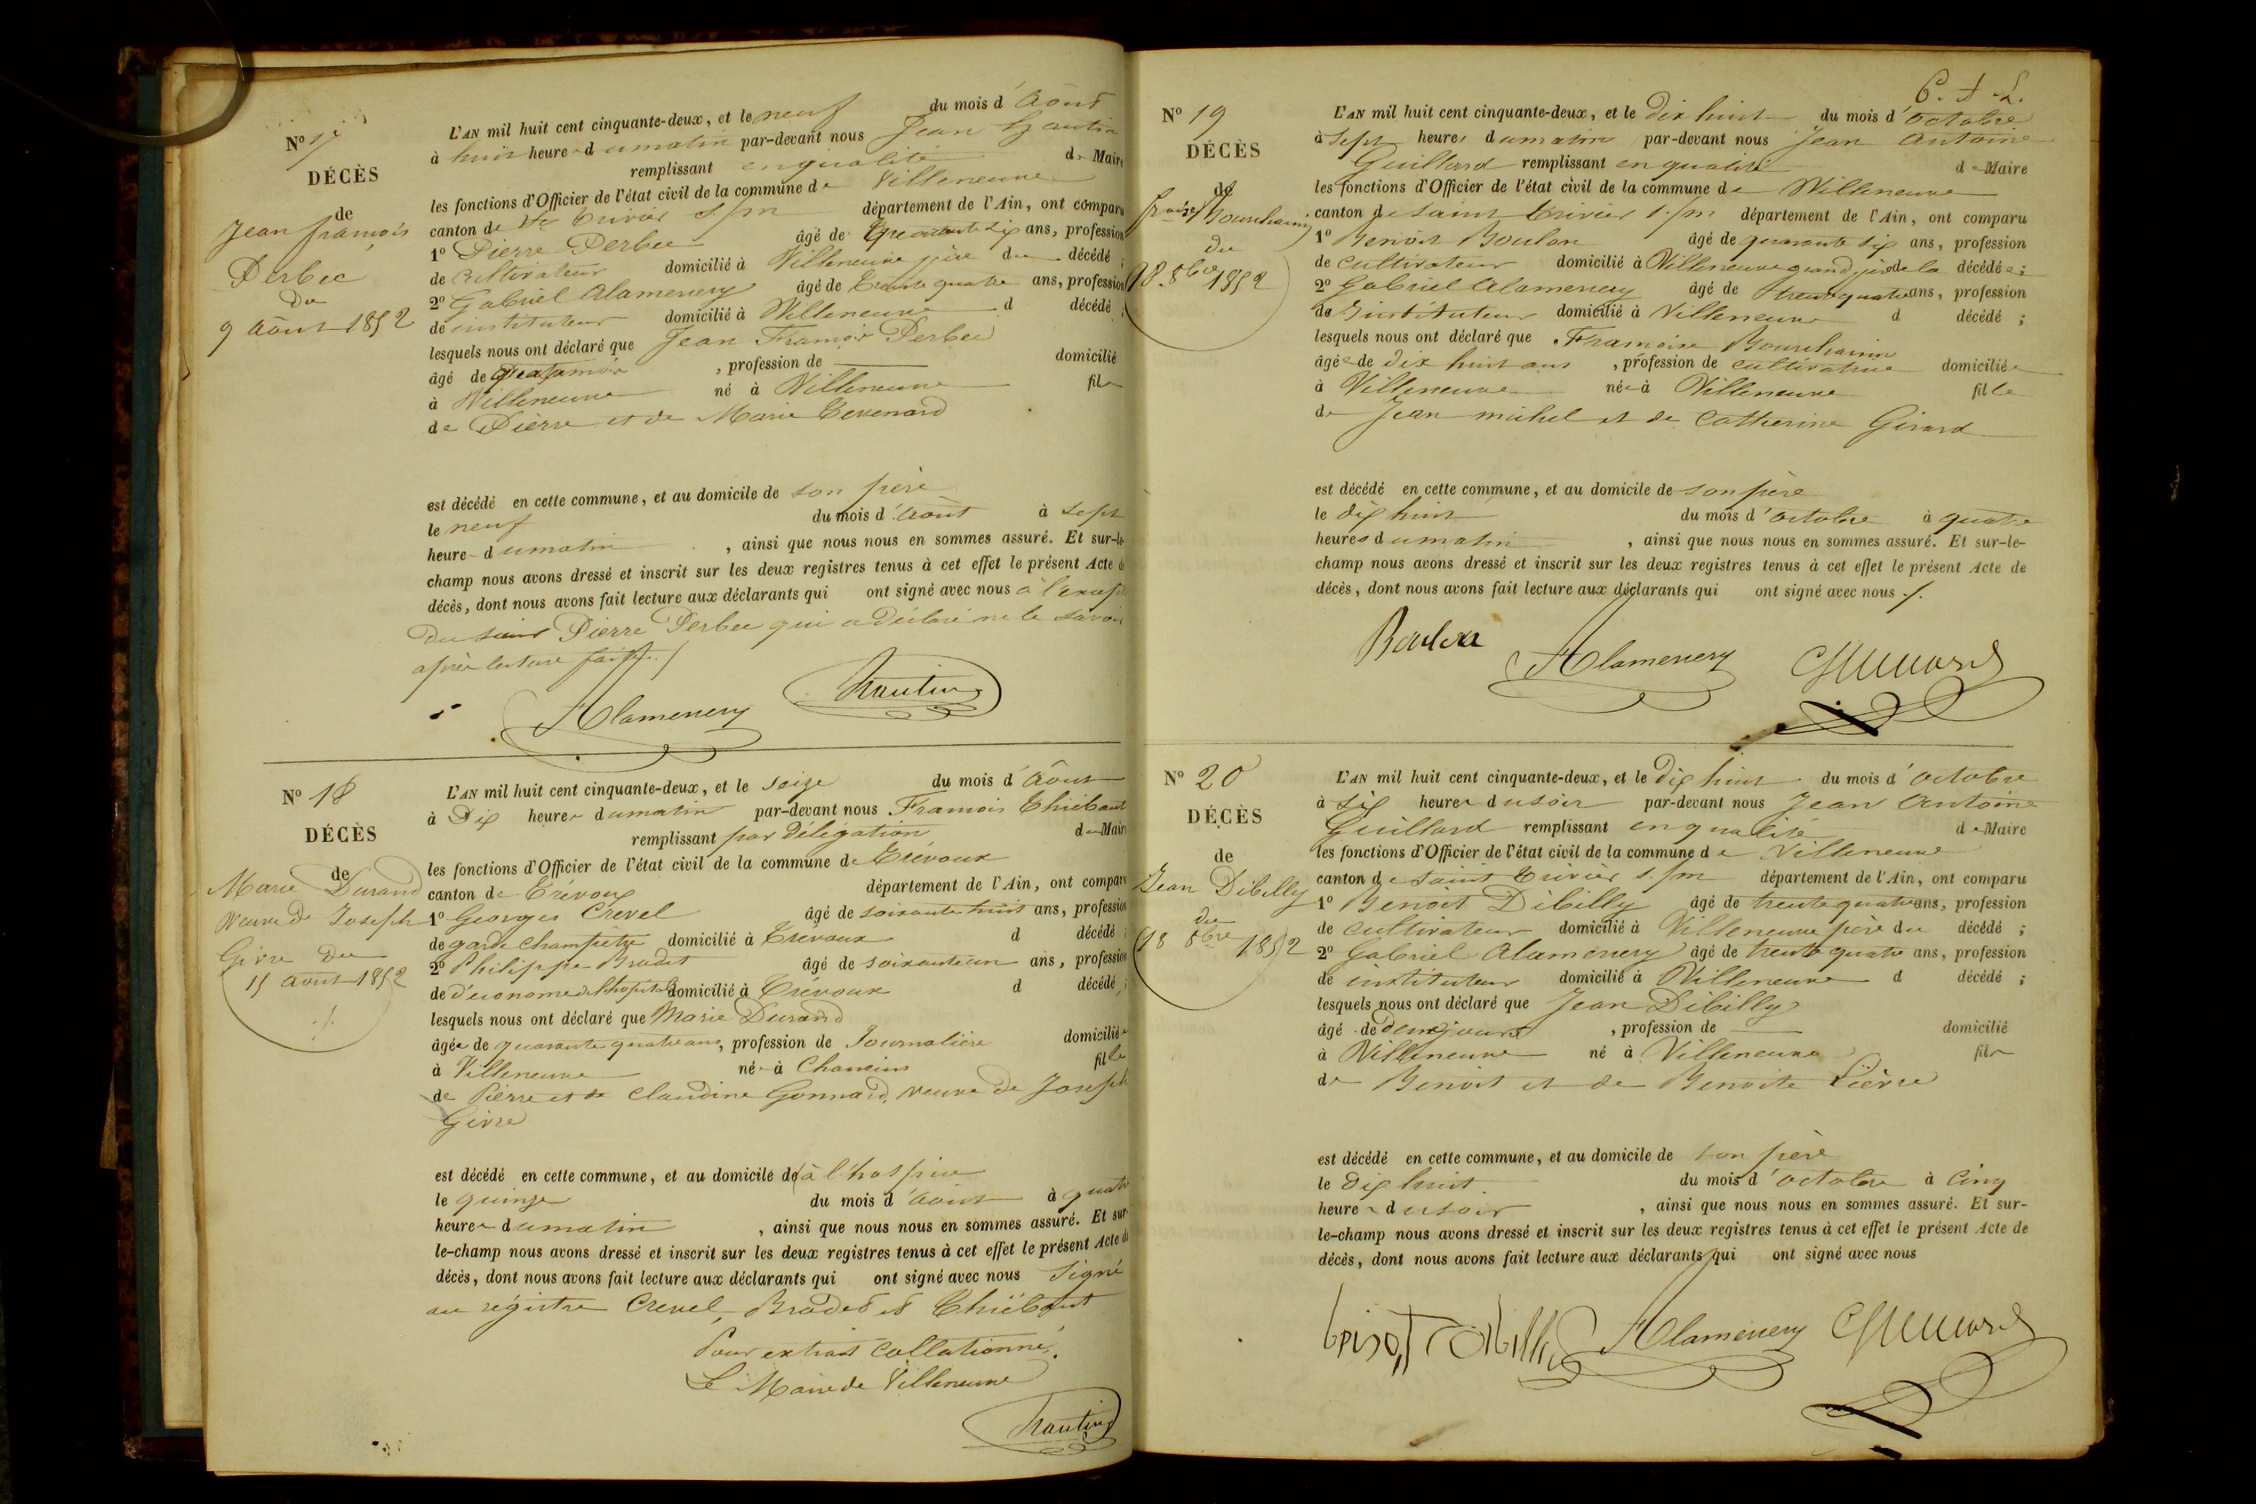 N° 17
DÉCÈS
de
Jean françois
Perbec
du
9 août 1852
L'AN mil huit cent cinquante-deux, et le neuf du mois d'août
à huit heures du matin par-devant nous Jean
remplissant en qualité de Maire
les fonctions d'Officier de l'état civil de la commune de Villeneuve
canton de St Trivier s/m département de l'Ain, ont comparu
1° Pierre Perbec âgé de ans, profession
de cultivateur domicilié à Villeneuve père du décédé ;
2° Gabriel Alamercery âgé de trente quatre ans, profession
de instituteur domicilié à Villeneuve d décédé ;
lesquels nous ont déclaré que Jean François Perbec
âgé de , profession de domicilié
à Villeneuve né à Villeneuve fils
de Pierre et de Marie Tevenard
est décédé en cette commune, et au domicile de son père
le neuf du mois d'août à sept
heures du matin , ainsi que nous nous en sommes assuré. Et sur-le-
champ nous avons dressé et inscrit sur les deux registres tenus à cet effet le présent Acte de
décès, dont nous avons fait lecture aux déclarants qui ont signé avec nous à l'except
du Pierre Perbec qui a déclaré ne le savoir
après lecture faite ./.
Alamercery
N° 18
DÉCÈS
de
Marie Durand
veuve de Joseph
Givre du
15 août 1852
L'AN mil huit cent cinquante-deux, et le seize du mois d'août
à Dix heures du matin par-devant nous François Thiébaut
remplissant par délégation de Maire
les fonctions d'Officier de l'état civil de la commune de Trévoux
canton de Trévoux département de l'Ain, ont comparu
1° Georges Crevel âgé de soixante huit ans, profession
de garde champêtre domicilié à Trévoux d décédé ;
2° Philippe Brodet âgé de soixante un ans, profession
de d'économe de l'hopital domicilié à Trévoux d décédé ;
lesquels nous ont déclaré que Marie Durand
âgée de quarante quatre ans, profession de Journalière domiciliée
à Villeneuve née à Chaneins fille
de Pierre et de Claudine Gonnard, veuve de Joseph
Givre
est décédé en cette commune, et au domicile de à l'hospice
le quinze du mois d'août à quatre
heures du matin , ainsi que nous nous en sommes assuré. Et sur-
le-champ nous avons dressé et inscrit sur les deux registres tenus à cet effet le présent Acte de
décès, dont nous avons fait lecture aux déclarants qui ont signé avec nous Signé
au régistre Crevel, Brodet et Thiébaut
Pour extrait collationné,
Le Maire de Villeneuve
N° 19
DÉCÈS
de
fçoise Bourchanin
du
18 8bre 1852
L'AN mil huit cent cinquante-deux, et le dix huit du mois d'octobre
à sept heures du matin par-devant nous Jean Antoine
Guillard remplissant en qualité de Maire
les fonctions d'Officier de l'état civil de la commune de Villeneuve
canton de Saint Trivier s/m département de l'Ain, ont comparu
1° Benoit Boulon âgé de quarante six ans, profession
de cultivateur domicilié à Villeneuve grand père de la décédée ;
2° Gabriel Alamercery âgé de trente quatre ans, profession
d'instituteur domicilié à Villeneuve d décédé ;
lesquels nous ont déclaré que Françoise Bourchanin
âgée de dix huit ans , profession de cultivatrice domiciliée
à Villeneuve née à Villeneuve fille
de Jean michel et de Catherine Girard
est décédé en cette commune, et au domicile de son père
le dix huit du mois d'octobre à quatre
heures du matin , ainsi que nous nous en sommes assuré. Et sur-le-
champ nous avons dressé et inscrit sur les deux registres tenus à cet effet le présent Acte de
décès, dont nous avons fait lecture aux déclarants qui ont signé avec nous ./.
Boulon Alamercery Guillard
N° 20
DÉCÈS
de
Jean Dibilly
du
18 8bre 1852
L'AN mil huit cent cinquante-deux, et le dix huit du mois d'octobre
à six heures du soir par-devant nous Jean Antoine
Guillard remplissant en qualité de Maire
les fonctions d'Officier de l'état civil de la commune de Villeneuve
canton de Saint Trivier s/m département de l'Ain, ont comparu
1° Benoit Dibilly âgé de trente quatre ans, profession
de cultivateur domicilié à Villeneuve père du décédé ;
2° Gabriel Alamercery âgé de trente quatre ans, profession
de instituteur domicilié à Villeneuve d décédé ;
lesquels nous ont déclaré que Jean Dibilly
âgé de deux jours , profession de domicilié
à Villeneuve né à Villeneuve fils
de Benoit et de Benoite Lièvre
est décédé en cette commune, et au domicile de son père
le dix huit du mois d'octobre à cinq
heures du soir , ainsi que nous nous en sommes assuré. Et sur-
le-champ nous avons dressé et inscrit sur les deux registres tenus à cet effet le présent Acte de
décès, dont nous avons fait lecture aux déclarants qui ont signé avec nous
Alamercery Guillard